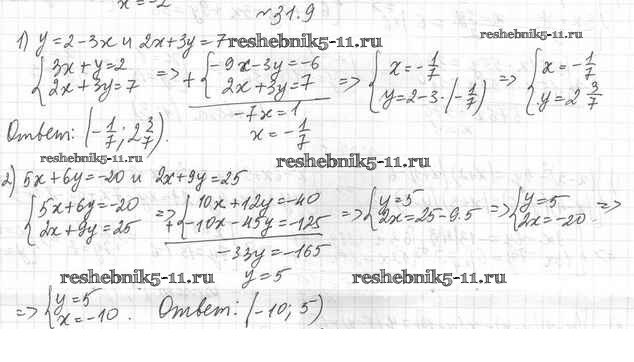 x=-2
№31.9
1) y=2-3x и 2x+3y=7 reshebnik5-11.ru
reshebnik5-11.ru
{3x+y=2 2x+3y=7 => +{-9x-3y=-6 2x+3y=7 => {x=-1/7 y=2-3·(-1/7) => {x=-1/7 y=2 3/7
-7x=1
x=-1/7
Ответ: (-1/7; 2 3/7).
reshebnik5-11.ru reshebnik5-11.ru
2) 5x+6y=-20 и 2x+9y=25
{5x+6y=-20 2x+9y=25 => +{10x+12y=-40 -10x-45y=-125 => {y=5 2x=25-9·5 => {y=5 2x=-20 =>
-33y=-165
y=5
reshebnik5-11.ru reshebnik5-11.ru
=> {y=5 x=-10. Ответ: (-10; 5)